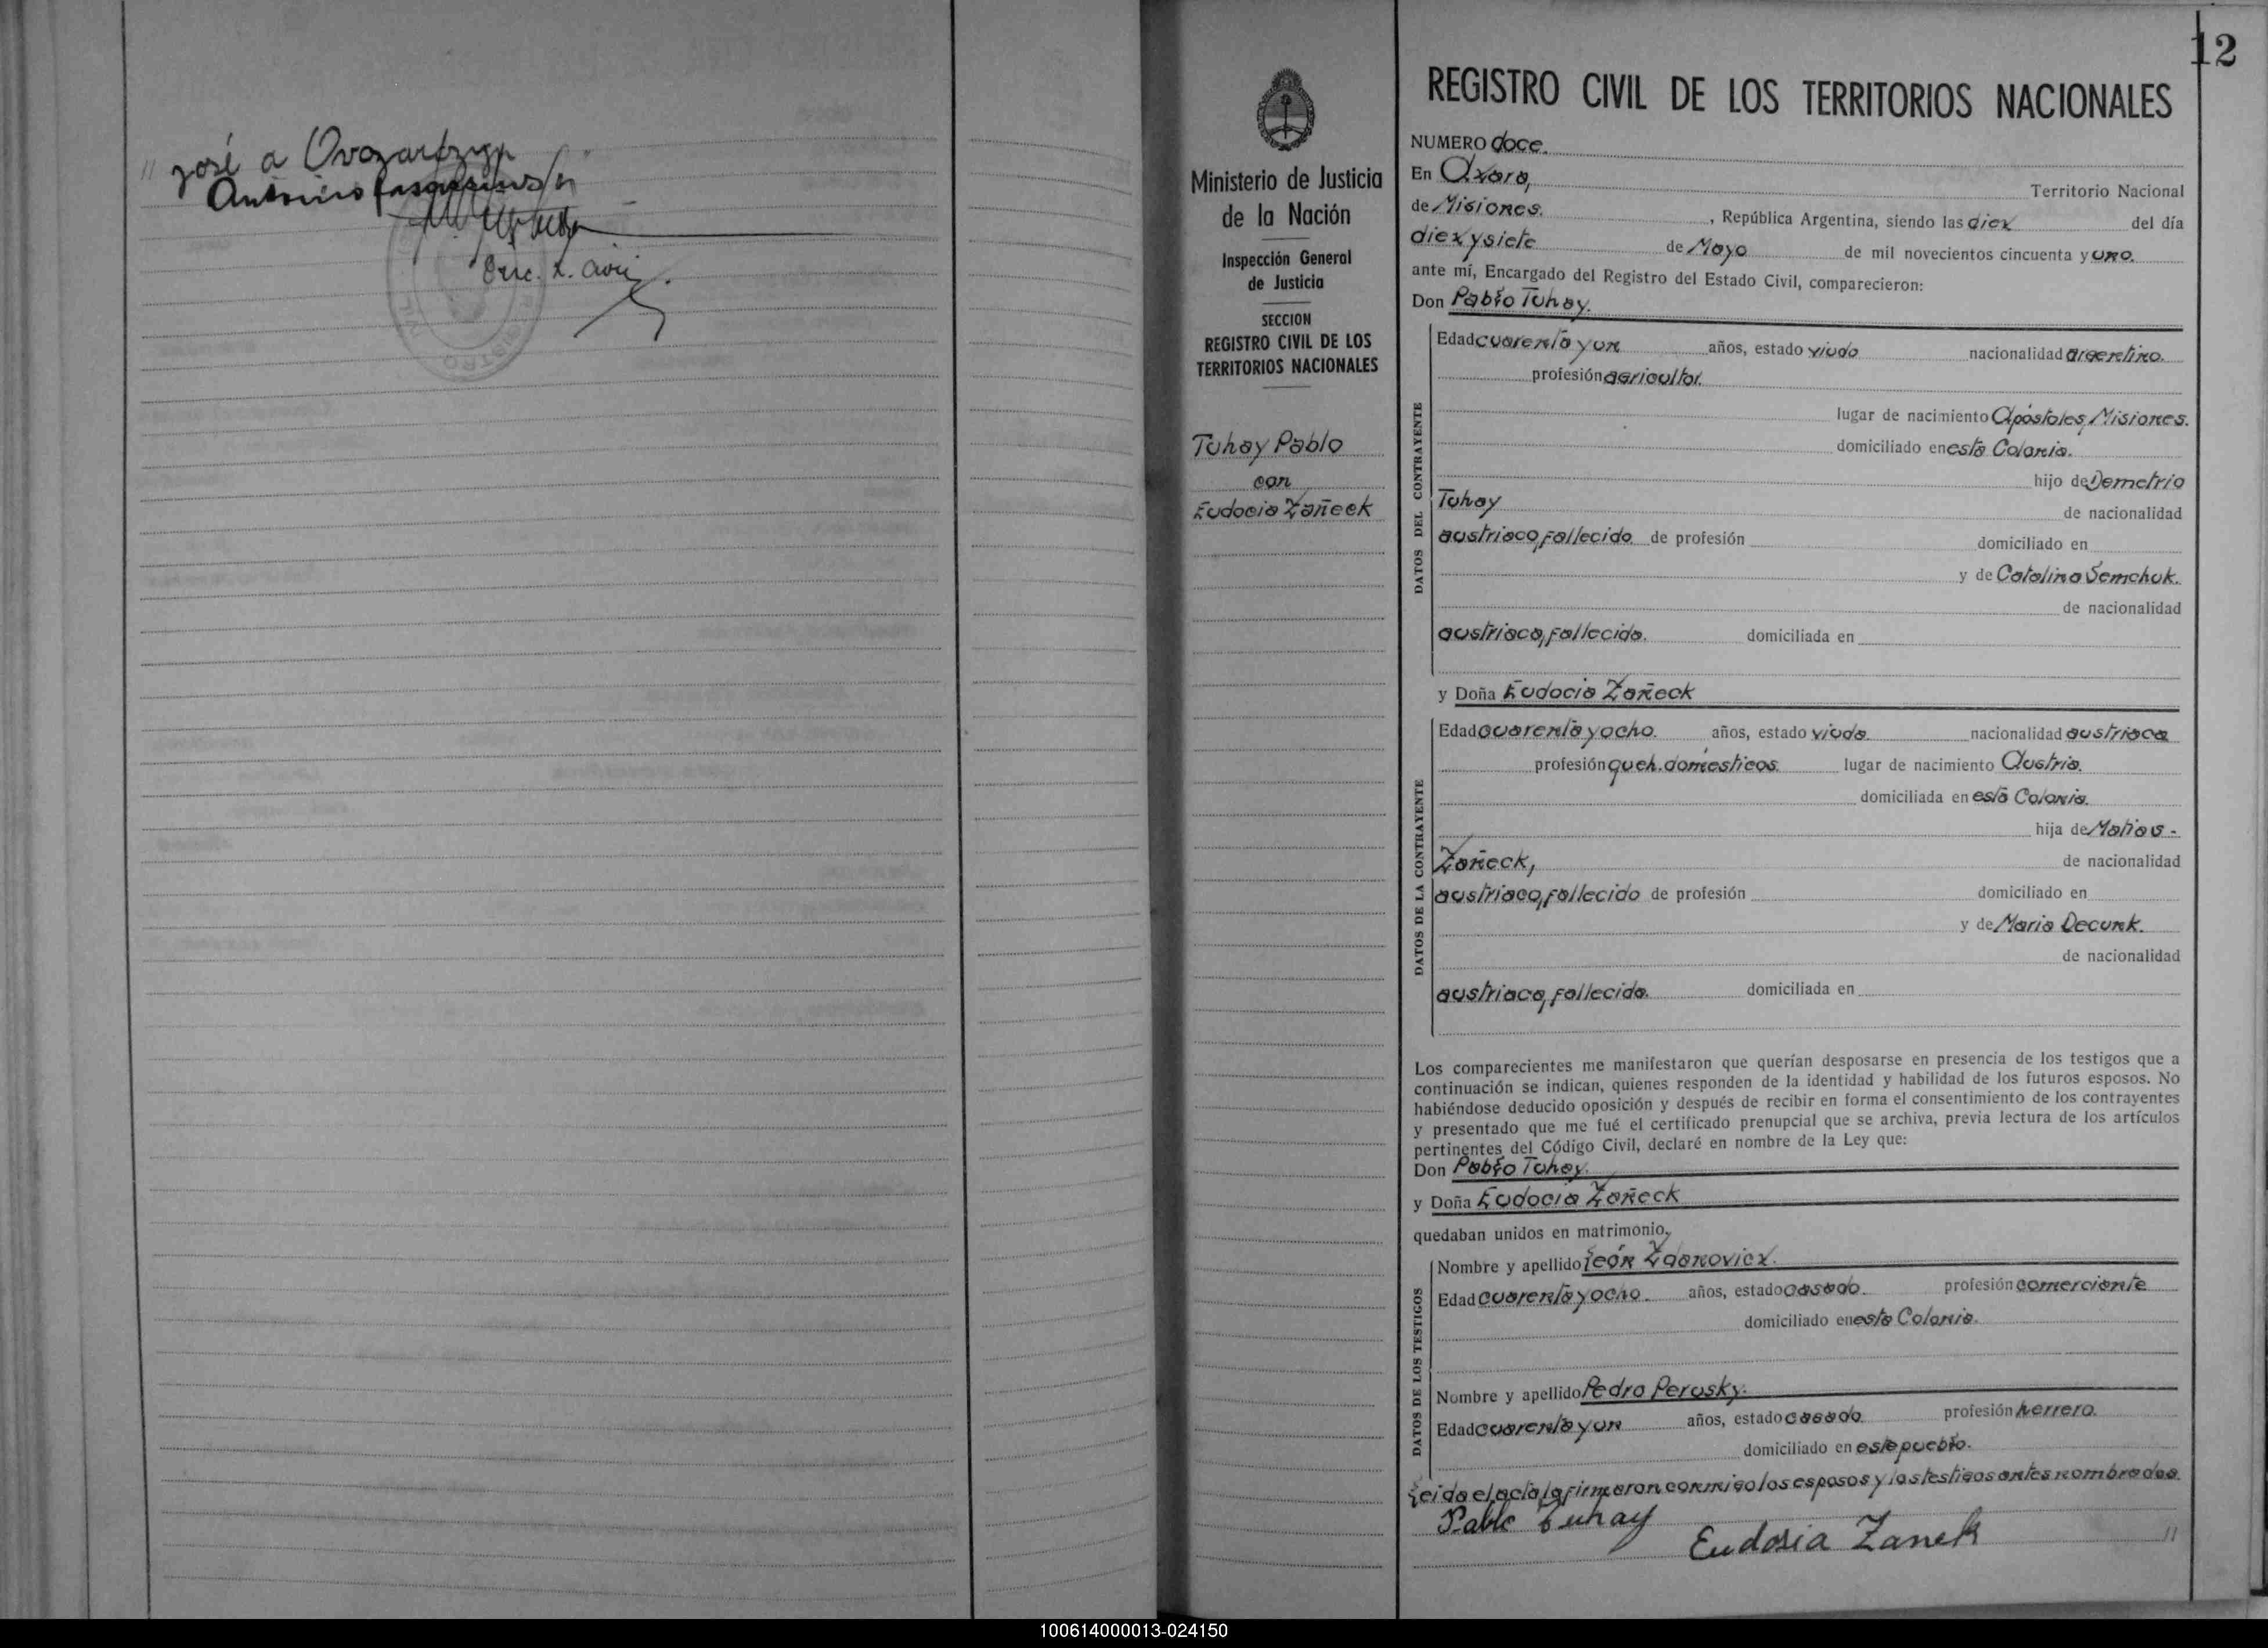 " José a
Antonino
Enc. R. Civil
12
REGISTRO CIVIL DE LOS TERRITORIOS NACIONALES
Ministerio de Justicia
de la Nación
Inspección General
de Justicia
SECCION
REGISTRO CIVIL DE LOS
TERRITORIOS NACIONALES
Tuhay Pablo
con
Eudocia Zañeck
NUMERO doce.
En Azara, Territorio Nacional
de Misiones. , República Argentina, siendo las diez del día
diez y siete de Mayo de mil novecientos cincuenta y uno.
ante mí, Encargado del Registro del Estado Civil, comparecieron:
Don Pablo Tuhay.
DATOS DEL CONTRAYENTE
Edad cuarenta y un años, estado viudo nacionalidad argentino.
profesión agricultor.
lugar de nacimiento Apóstoles, Misiones.
domiciliado en esta Colonia.
hijo de Demetrio
Tuhay de nacionalidad
austriaco, fallecido de profesión domiciliado en
y de Catalina Semchuk.
de nacionalidad
austriaca, fallecida. domiciliada en
y Doña Eudocia Zañeck
DATOS DE LA CONTRAYENTE
Edad cuarenta y ocho. años, estado viuda nacionalidad austriaca
profesión queh. domésticos. lugar de nacimiento Austria.
domiciliada en esta Colonia.
hija de Matias -
Zañeck, de nacionalidad
austriaco, fallecido de profesión domiciliado en
y de Maria Decunk.
de nacionalidad
austriaca, fallecida. domiciliada en
Los comparecientes me manifestaron que querían desposarse en presencia de los testigos que a
continuación se indican, quienes responden de la identidad y habilidad de los futuros esposos. No
habiéndose deducido oposición y después de recibir en forma el consentimiento de los contrayentes
y presentado que me fué el certificado prenupcial que se archiva, previa lectura de los artículos
pertinentes del Código Civil, declaré en nombre de la Ley que:
Don Pablo Tuhay.
y Doña Eudocia Zañeck
quedaban unidos en matrimonio.
DATOS DE LOS TESTIGOS
Nombre y apellido León Zdanovicz.
Edad cuarenta y ocho. años, estado casado. profesión comerciante
domiciliado en esta Colonia.
Nombre y apellido Pedro Perusky.
Edad cuarenta y un años, estado casado profesión herrero.
domiciliado en este pueblo.
Leida el acta la firmaron conmigo los esposos y los testigos antes nombrados.
Pablo Tuhay
Eudosia Zanek "
100614000013-024150